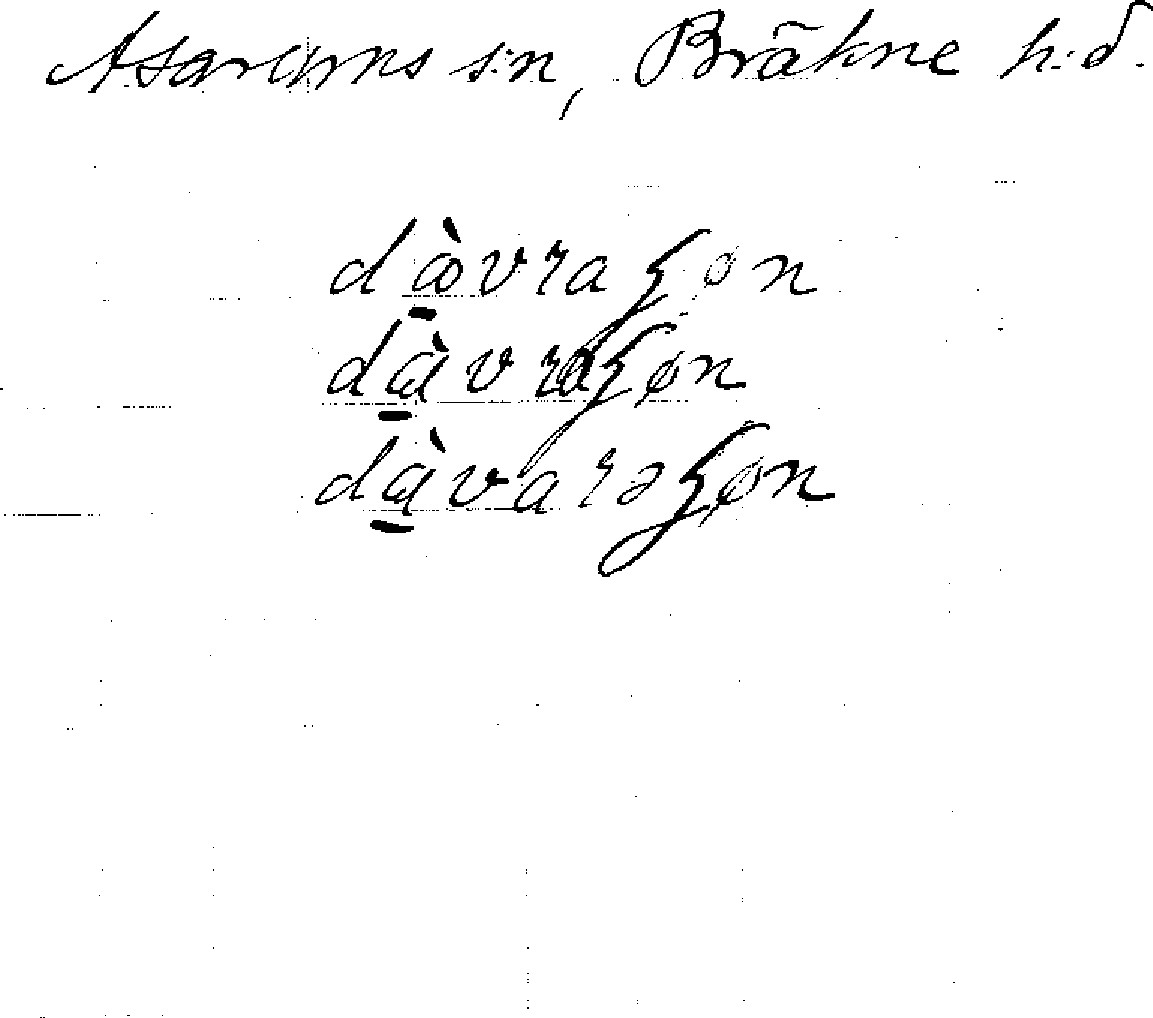 Asarums s:n, Bräkne h:d.
dàvraʒøn
dàvraʒøn
dàvarəʒøn